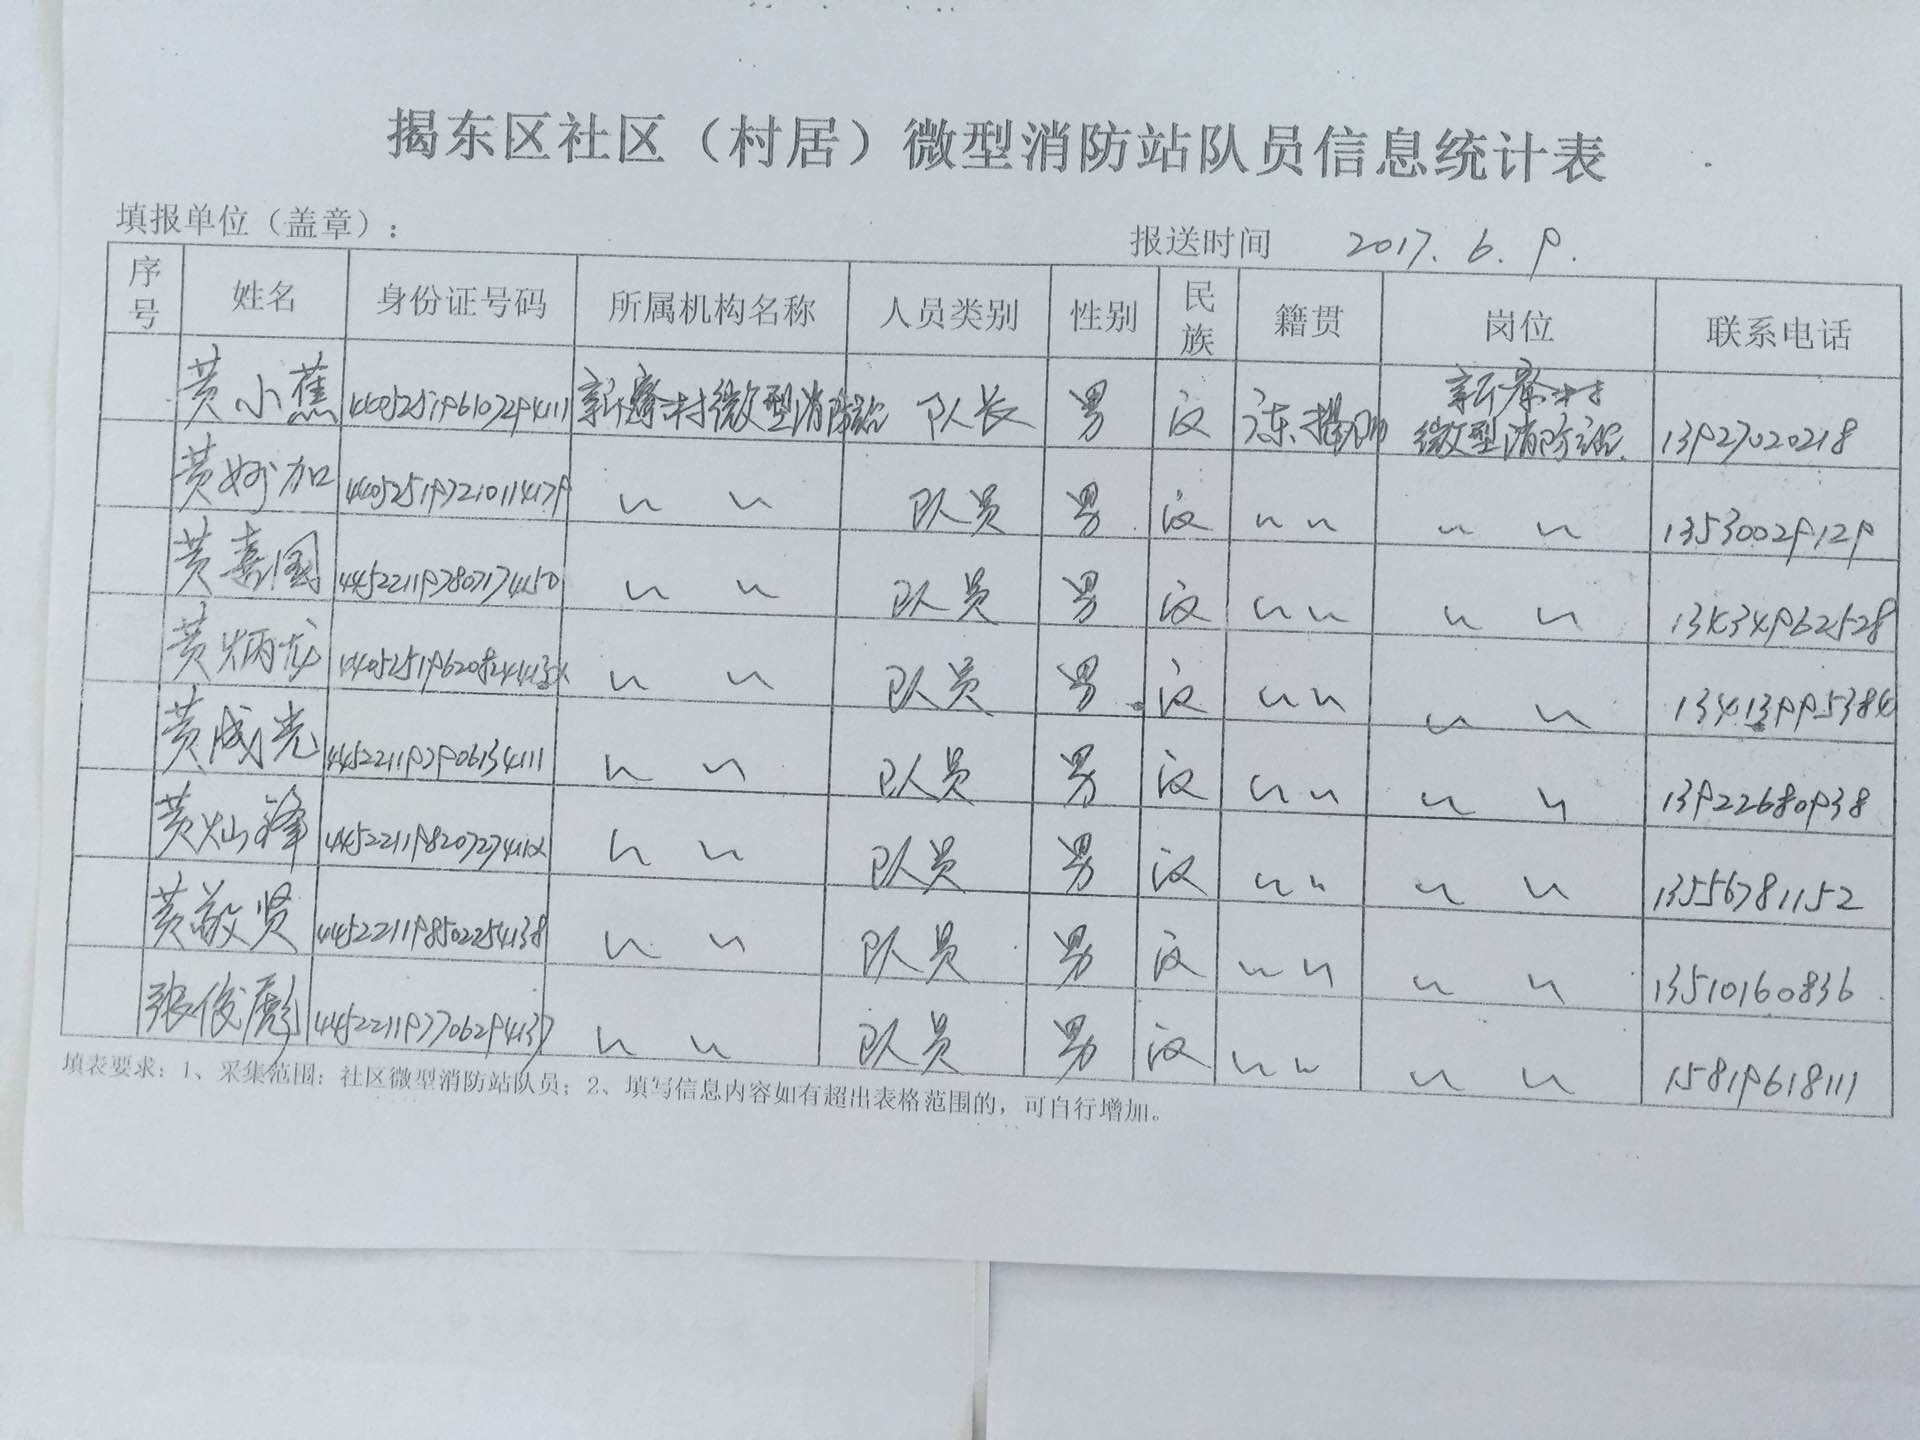 揭东区社区（村居）微型消防站队员信息统计表
填报单位（盖章）： 报送时间 2017.6.9.
序号 姓名 身份证号码 所属机构名称 人员类别 性别 民族 籍贯 岗位 联系电话
黄小蕉 440525196107294111 新寮村微型消防站 队长 男 汉 广东揭阳 新寮村微型消防站 13927020218
黄 加 队员 男 汉 13530029129
黄喜国 445221197807174150 队员 男 汉 13434962528
黄炳龙 队员 男 汉 13413995384
黄成光 445221197906134111 队员 男 汉 13922680938
黄灿锋 44522119820727411X 队员 男 汉 13556781152
黄敬贤 445221198502254138 队员 男 汉 13510160836
张俊彪 445221197706294137 队员 男 汉 15819618111
填表要求：1、采集范围：社区微型消防站队员；2、填写信息内容如有超出表格范围的，可自行增加。